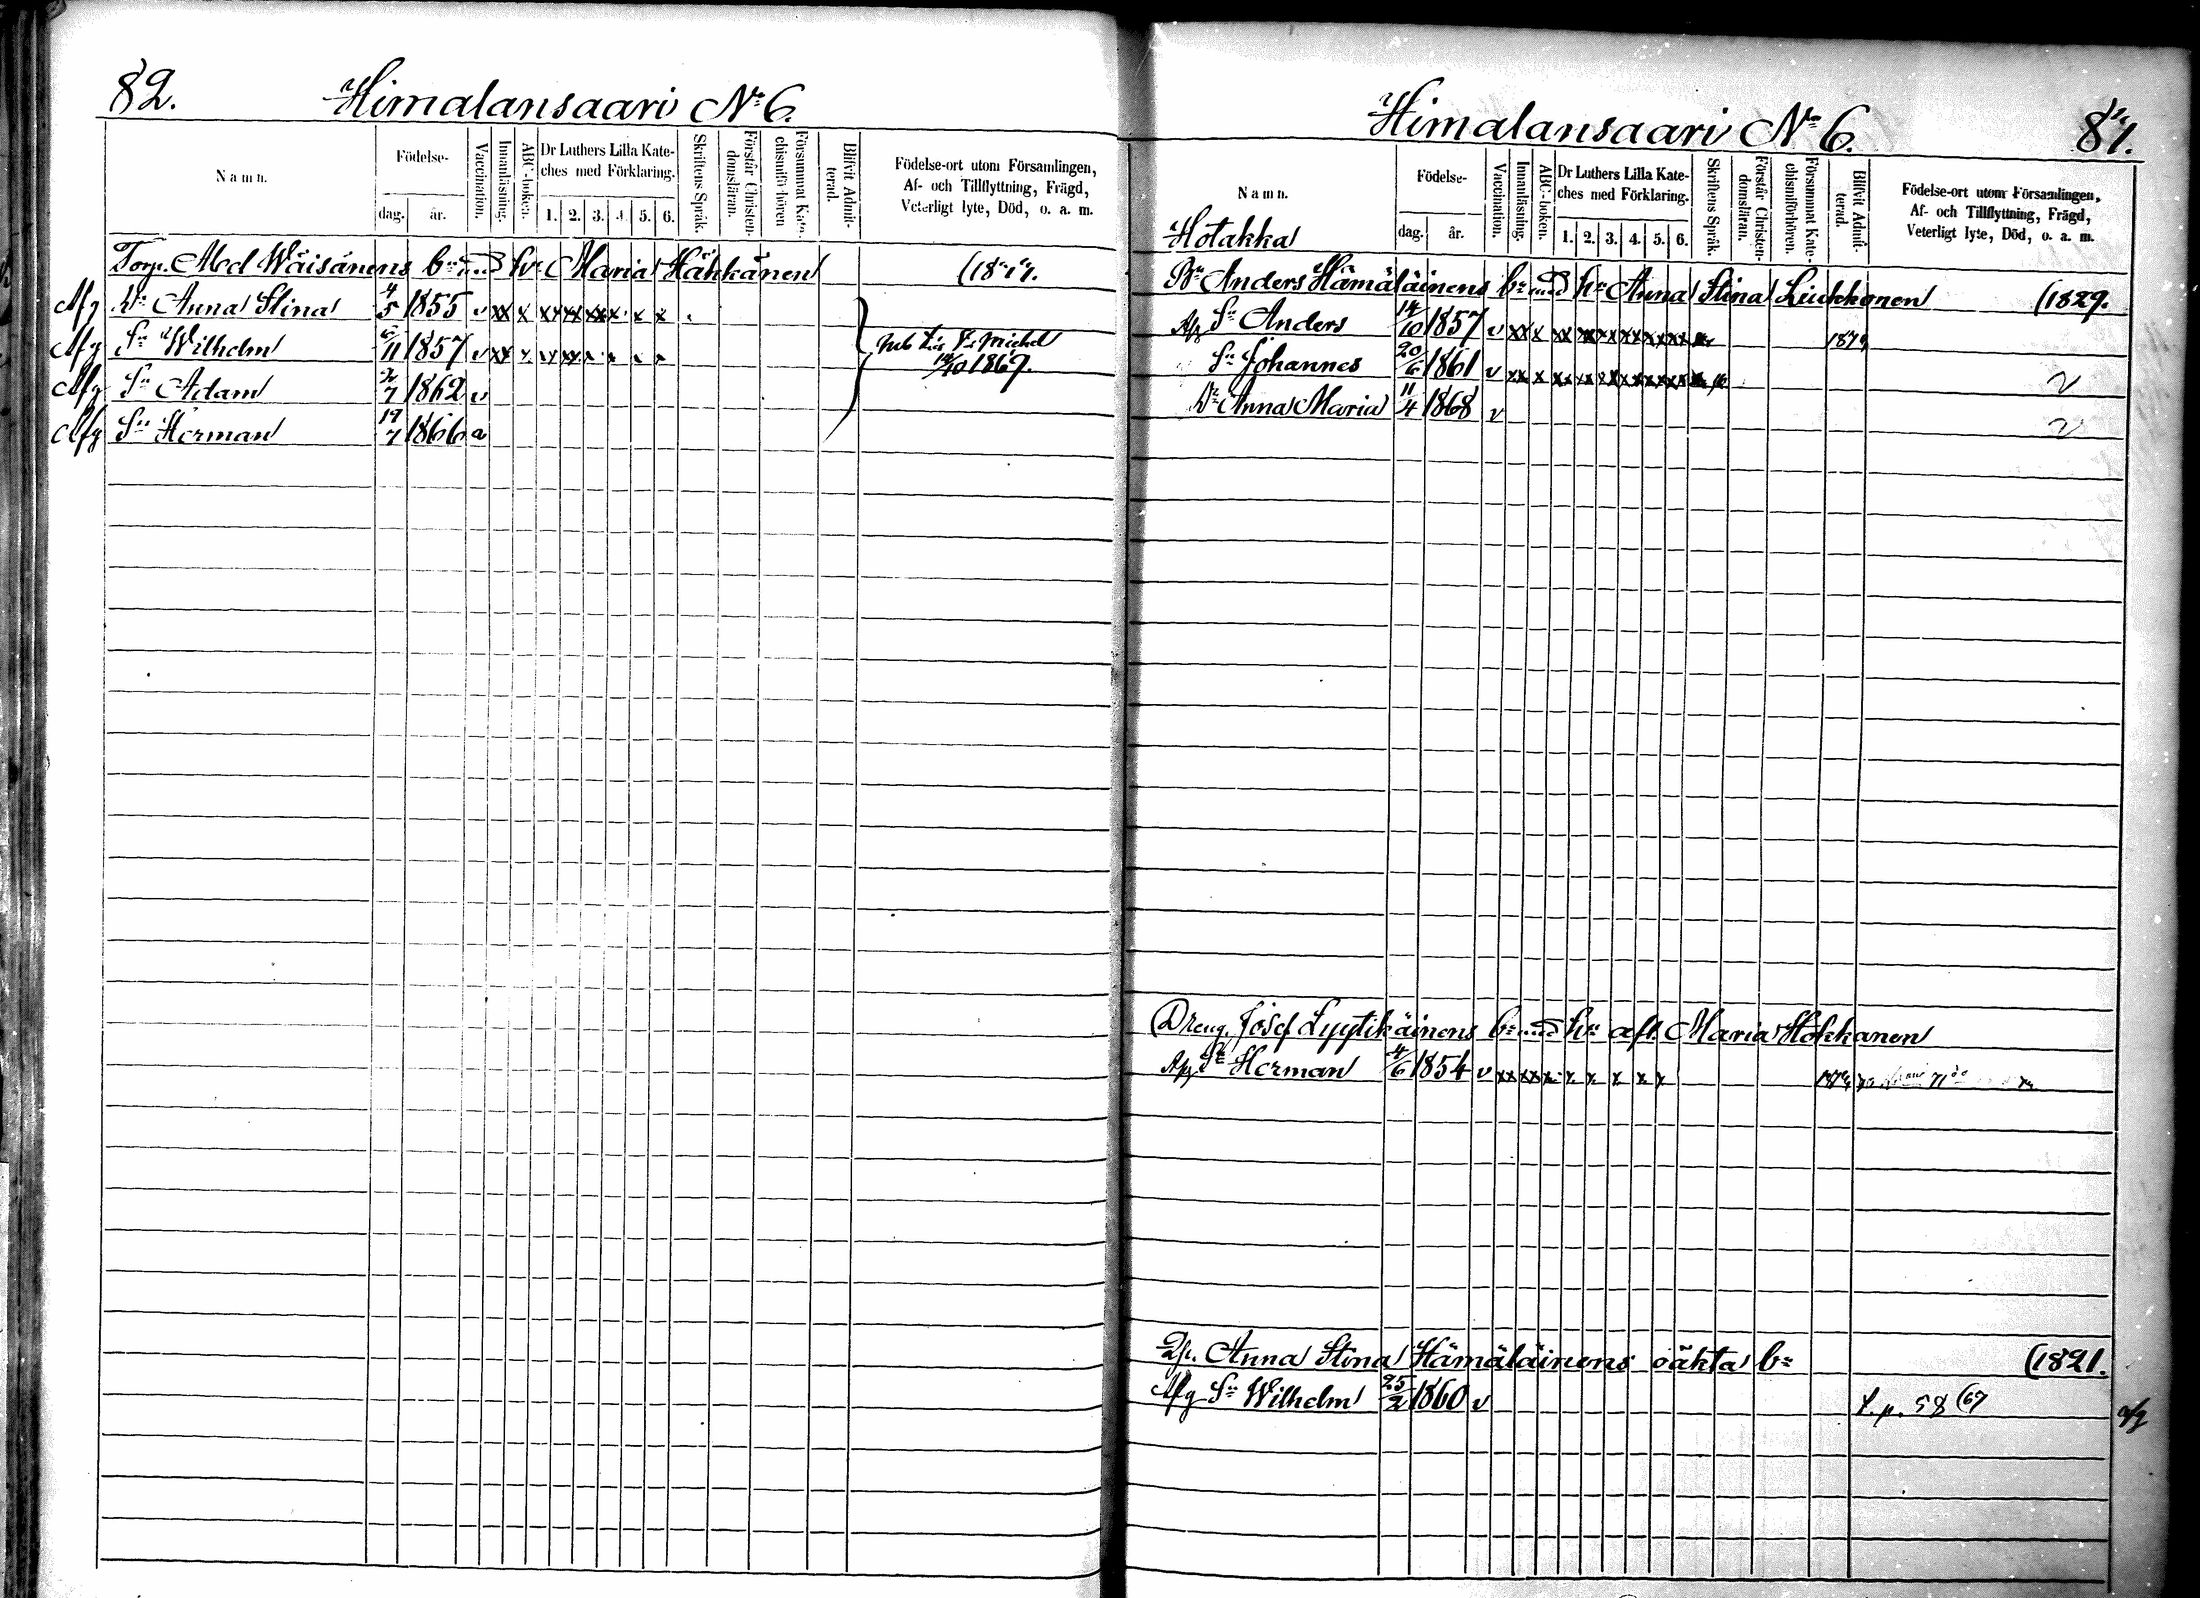 82.
Himalansaari No 6.
Namn.
Födelse-
dag.
år.
Vaccination.
Innanläsning.
ABC-boken.
Dr Luthers Lilla Kate-
ches med Förklaring.
1. 2. 3. 4. 5. 6.
Skriftens Språk.
Förstår Christen-
domsläran.
Försummat Kate-
chismiförhören
Blifvit Admit-
terad.
Födelse-ort utom Församlingen,
Af- och Tillflyttning, Frägd,
Veterligt lyte, Död, o. a. m.
Torp. Abel Wäisänens br med hr Maria Häkkänen
Afg Dr Anna Stina 4/5 1855 v xx x xx xx xx x x x
Afg Sn Wilhelm 6/11 1857 v
Afg Sn Adam 2/7 1862 v
Afg Sn Herman 19/7 1866 a
St Michel
1869.
Himalansaari No 6.
81.
Namn.
Födelse-
dag.
år.
Vaccination.
Innanläsning.
ABC-boken.
Dr Luthers Lilla Kate-
ches med Förklaring.
1. 2. 3. 4. 5. 6.
Skriftens Språk.
Förstår Christen-
domsläran.
Försummat Kate-
chismiförhören.
Blifvit Admit-
terad.
Födelse-ort utom Församlingen,
Af- och Tillflyttning, Frägd,
Veterligt lyte, Död, o. a. m.
Hotakka
Bn Anders Hämäläinens br med hr Anna Stina Liukkonen (1829.
Afg Sn Anders 14/10 1857 v xx x xx xx xx xx xx xx
Sn Johannes 20/6 1861 v xx x v
Dr Anna Maria 11/4 1868 v v
Dreng. Josef Lyytikäinens br med hr afl. Maria Hokkanen
Afg Sn Herman 4/6 1854 v xx xx x x x x x x
Anna Stina Hämäläinens oäkta br (1821.
Afg Sn Wilhelm 25/2 1860 v t. p. 58 (67
afg